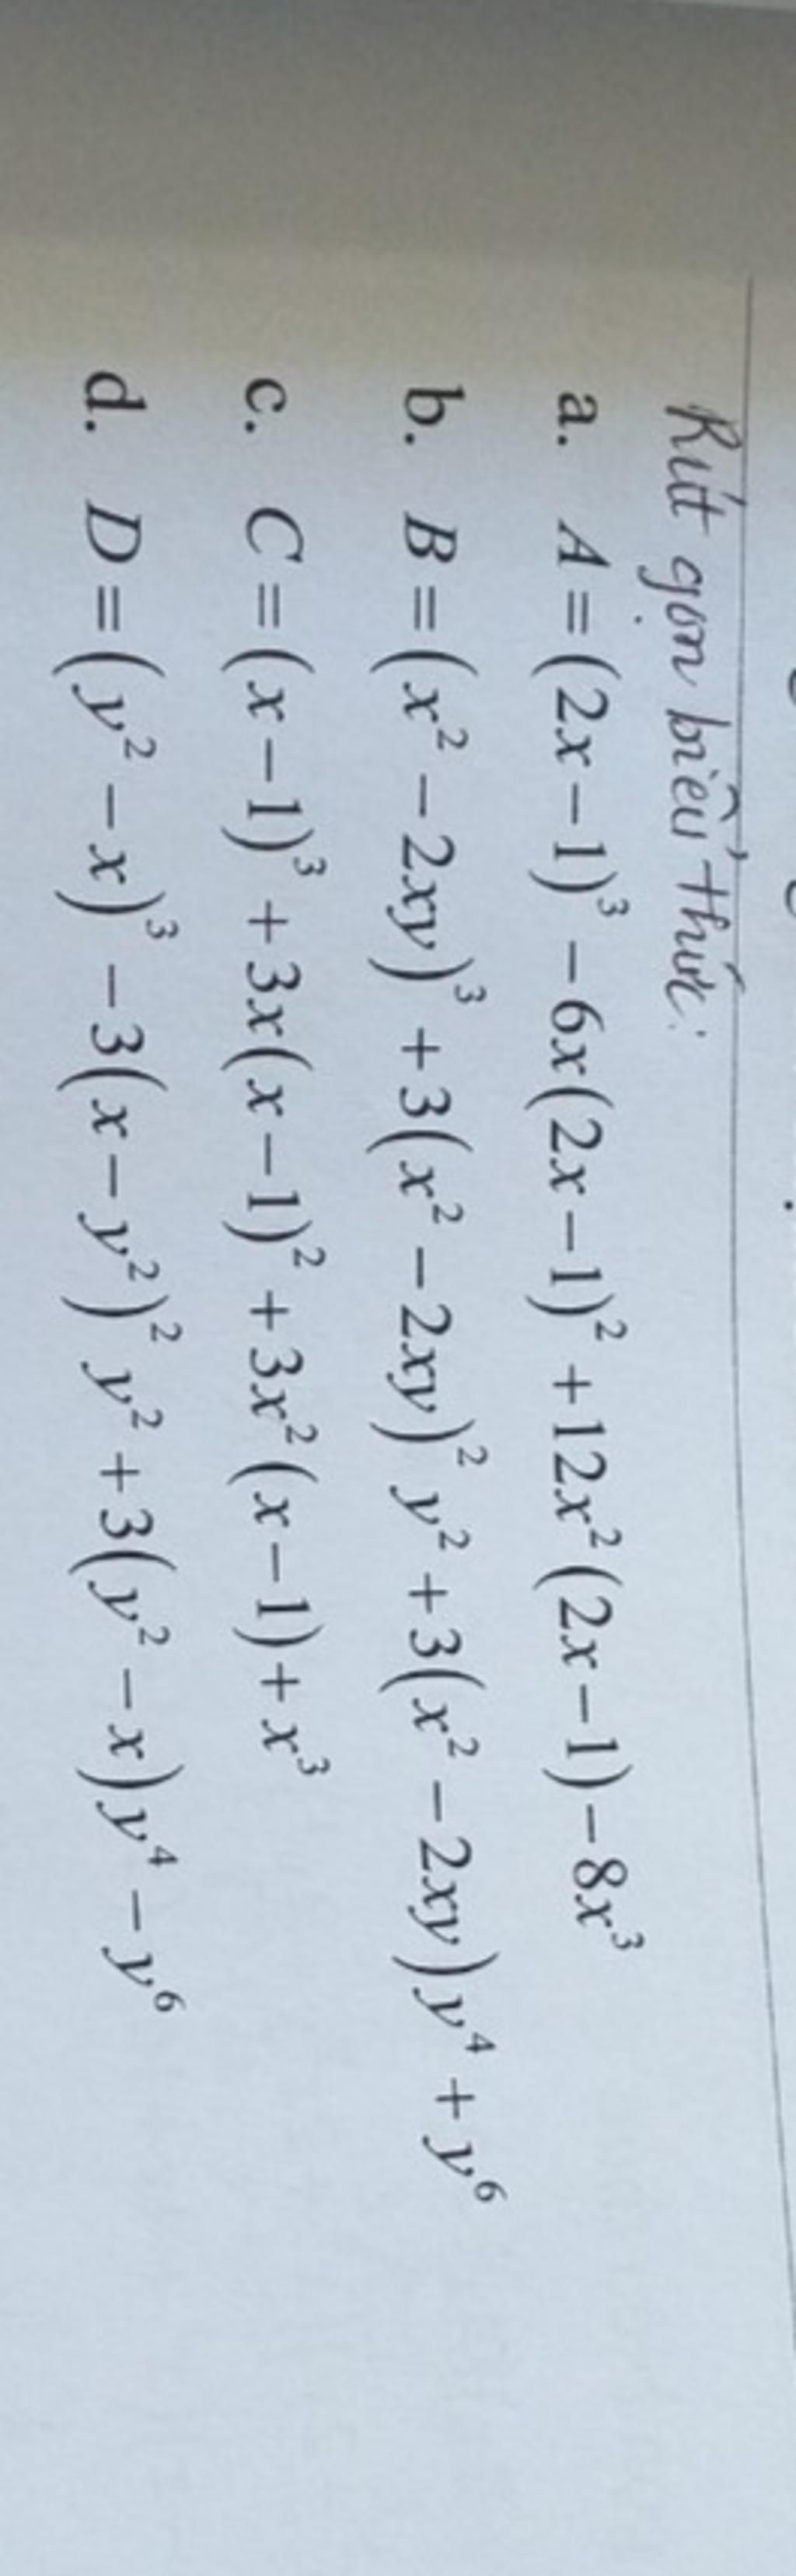 Rút gọn biểu thức:
a. A = (2x − 1)³ − 6x(2x − 1)² + 12x²(2x − 1) − 8x³
b. B = (x² − 2xy)³ + 3(x² − 2xy)² y² + 3(x² − 2xy) y⁴ + y⁶
c. C = (x − 1)³ + 3x(x − 1)² + 3x²(x − 1) + x³
d. D = (y² − x)³ − 3(x − y²)² y² + 3(y² − x) y⁴ − y⁶